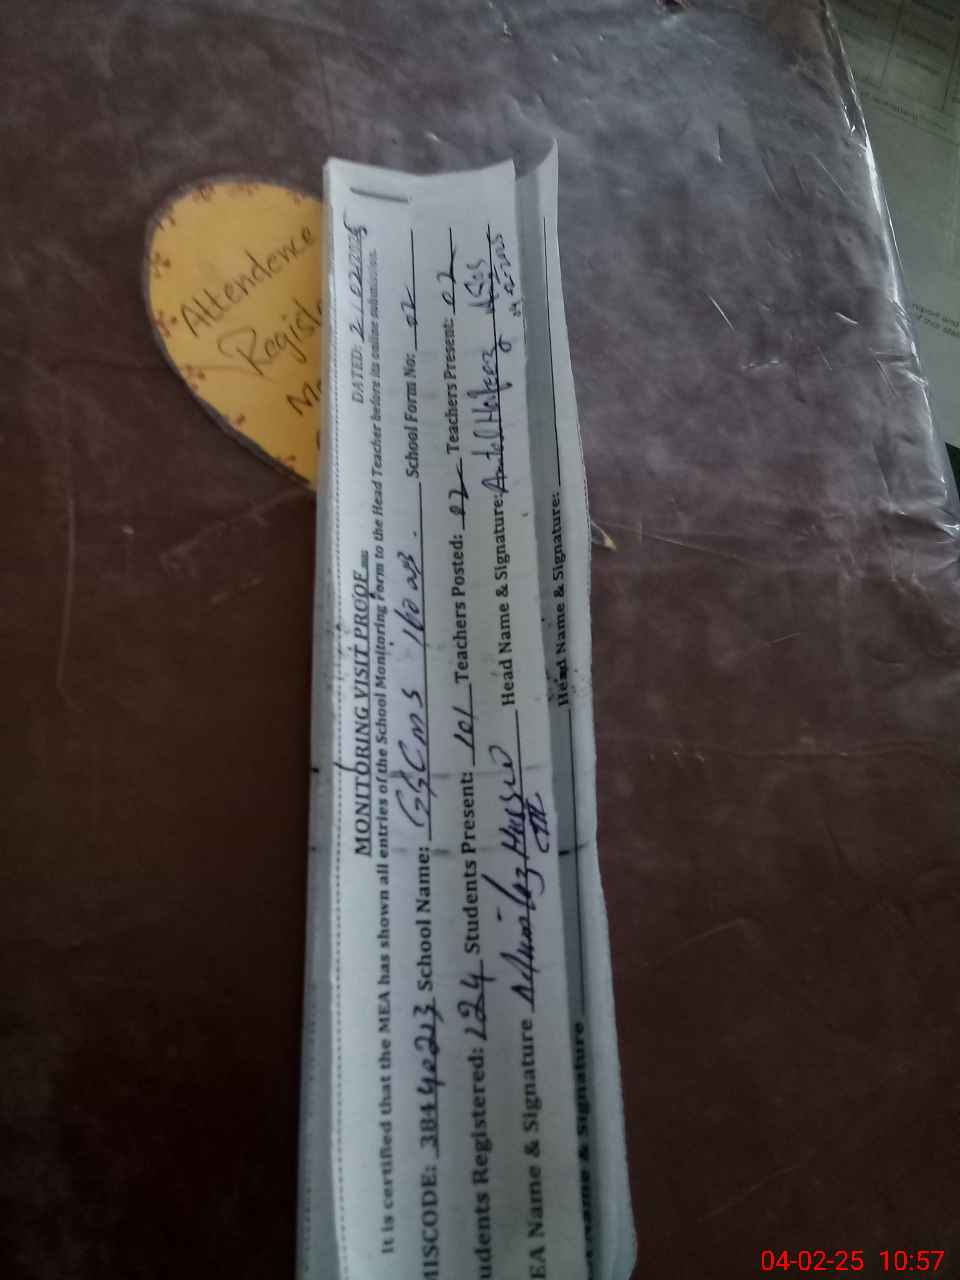 Attendence
Regist
MONITORING VISIT PROOF
DATED: 2/02/2025
It is certified that the MEA has shown all entries of the School Monitoring Form to the Head Teacher before its online submission.
MISCODE: 38440213 School Name: GGCMS School Form No: 02
udents Registered: 124 Students Present: 101 Teachers Posted: 02 Teachers Present: 02
EA Name & Signature Head Name & Signature:
Name & Signature Head Name & Signature:
04-02-25 10:57